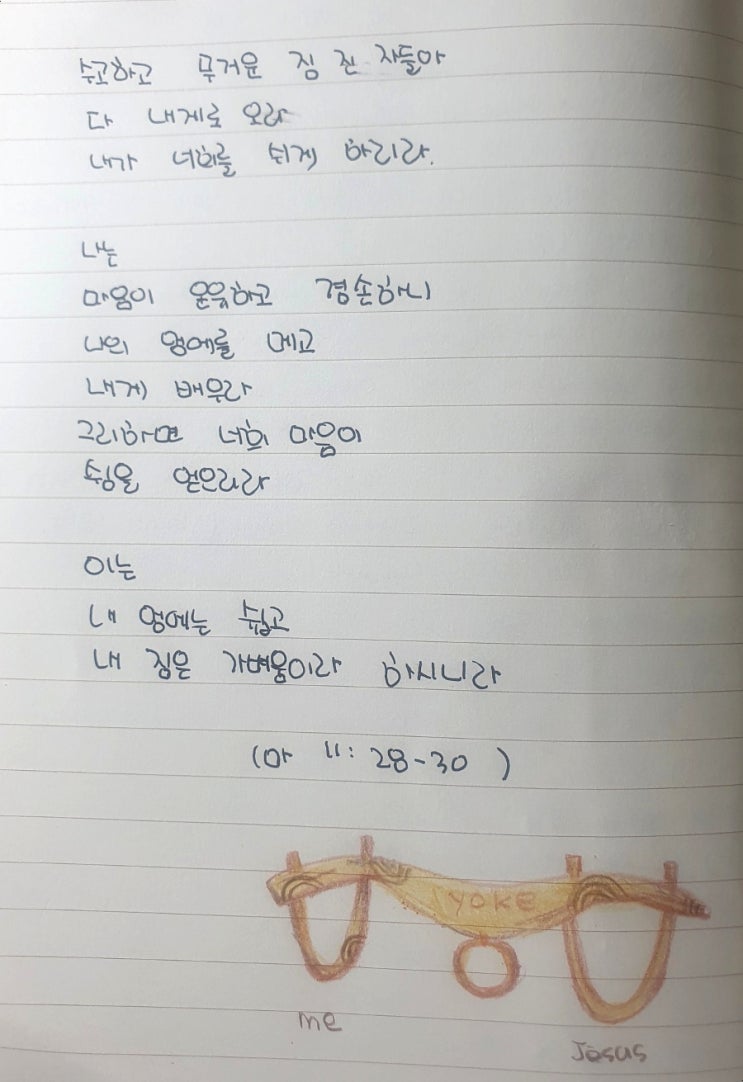 수고하고 무거운 짐 진 자들아
다 내게로 오라
내가 너희를 쉬게 하리라.
나는
마음이 온유하고 겸손하니
나의 멍에를 메고
내게 배우라
그리하면 너희 마음이
쉼을 얻으리라
이는
내 멍에는 쉽고
내 짐은 가벼움이라 하시니라
(마 11: 28-30 )
yoke
me
Jesus